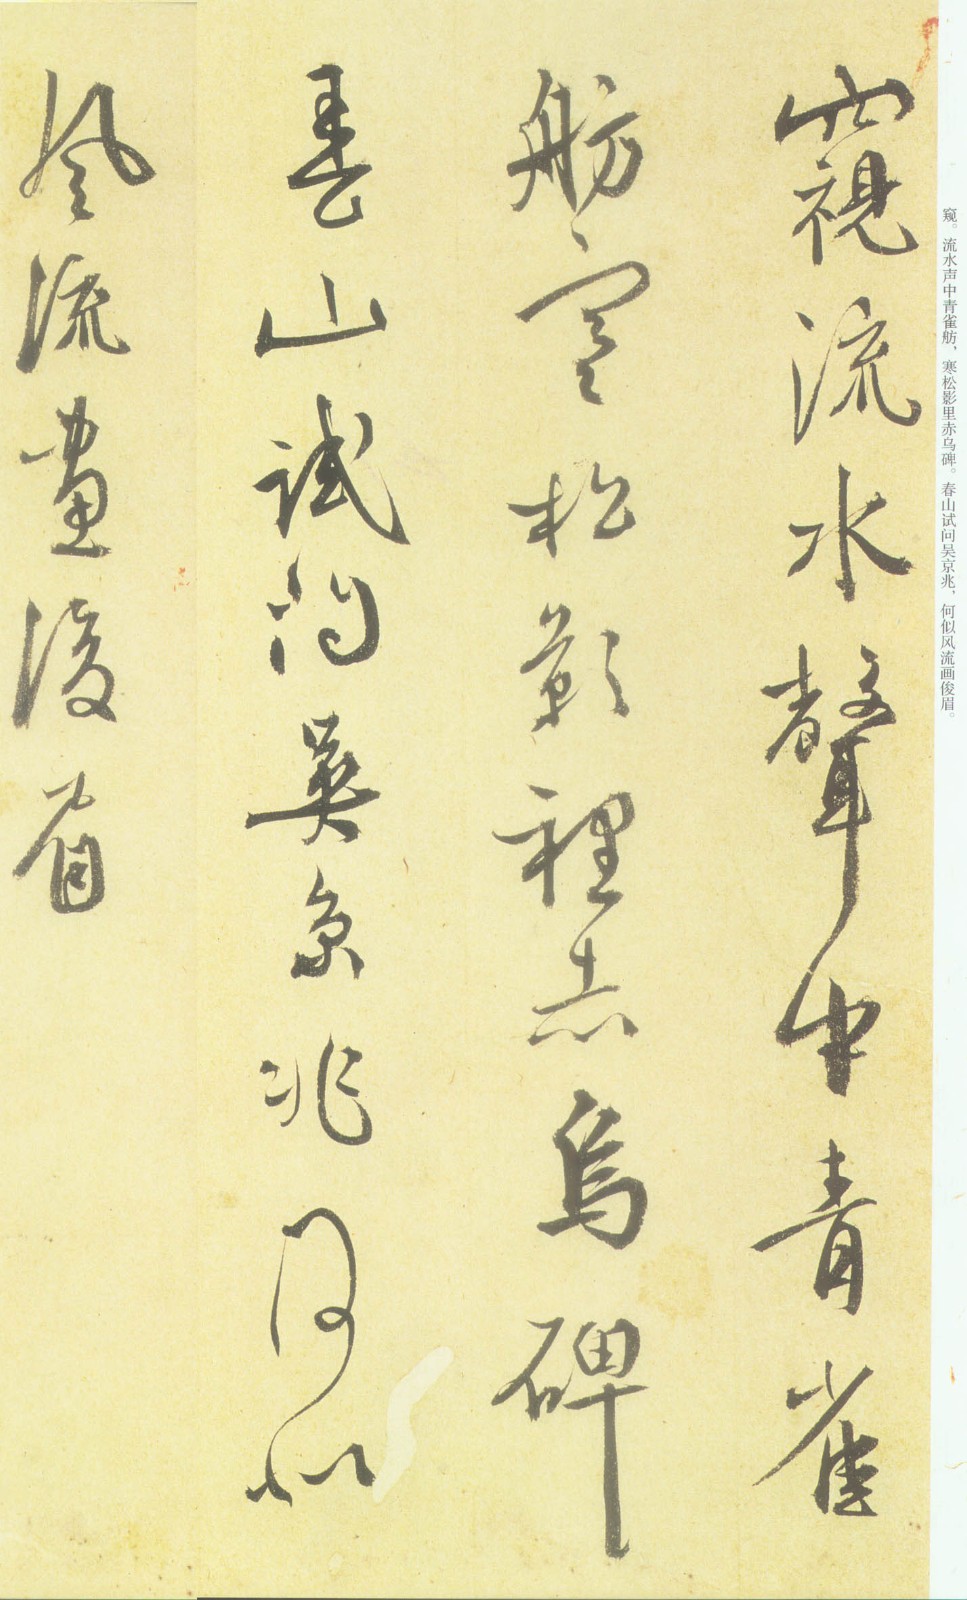 窥。流水声中青雀舫，寒松影里赤乌碑。春山试问吴京兆，何似风流画俊眉。
窺流水聲中青雀
舫寒松影裡赤烏碑
春山試問吴京兆何似
風流畫俊眉